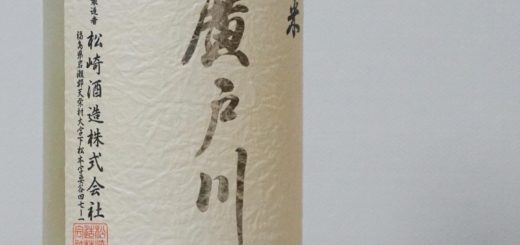 米
廣戸川
製造者
松崎酒造株式会社
福島県岩瀬郡天栄村大字下松本字要谷四七ー一